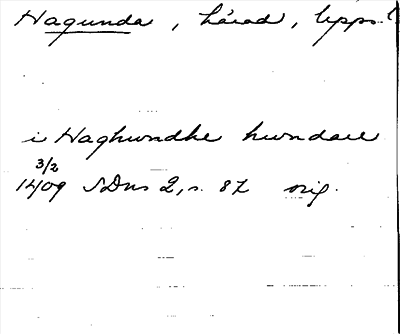 Hagunda, härad, Upps. l
i Haghwndhe hwndare
3/2
1409 SDns 2, s. 87 orig.